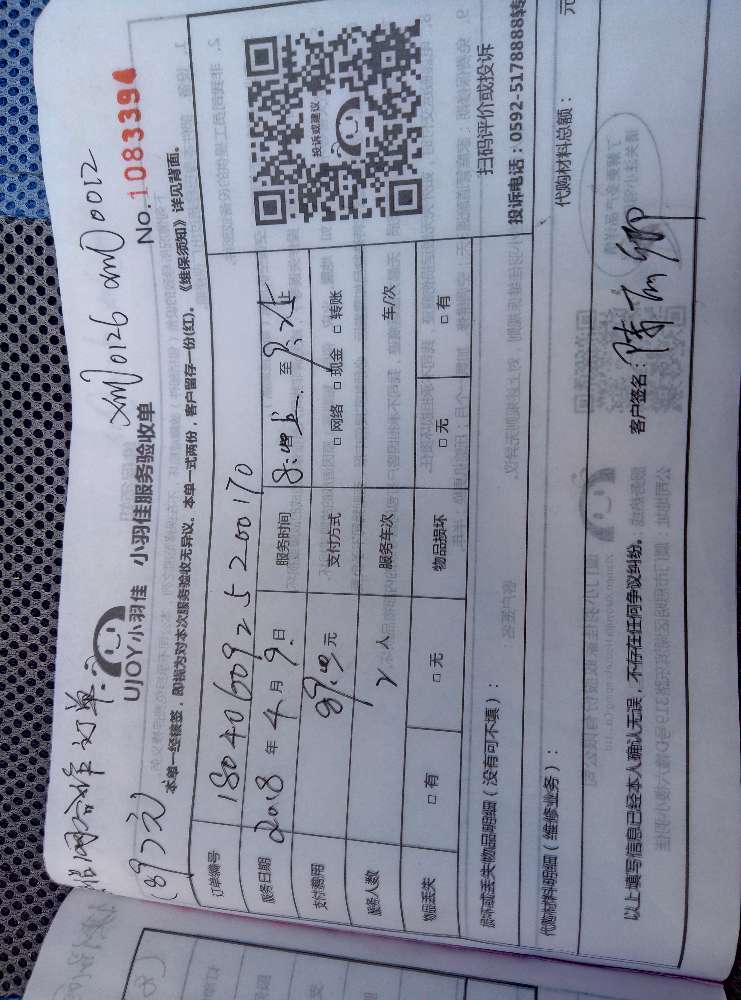 网合作订单
(89元)
xm0126 xm0012
UJOY小羽佳 小羽佳服务验收单
No. 1083394
本单一经核签，即视为对本次服务验收无异议。本单一式两份，客户留存一份(红)。《维保须知》详见背面。
订单编号 1804060925200170
服务日期 2018 年 4 月 9 日 服务时间 至
支付费用 89.00 元 支付方式 □ 网络 □ 现金 □ 转账
服务人数 2 人 服务车次 车/次
物品丢失 □ 有 □ 无 物品损坏 □ 无 □ 有
投诉或建议
扫码评价或投诉
投诉电话：0592-5178888转
损坏或丢失物品明细（没有可不填）：
代购材料明细（维修业务）： 代购材料总额： 元
以上填写信息已经本人确认无误，不存在任何争议纠纷。 客户签名：